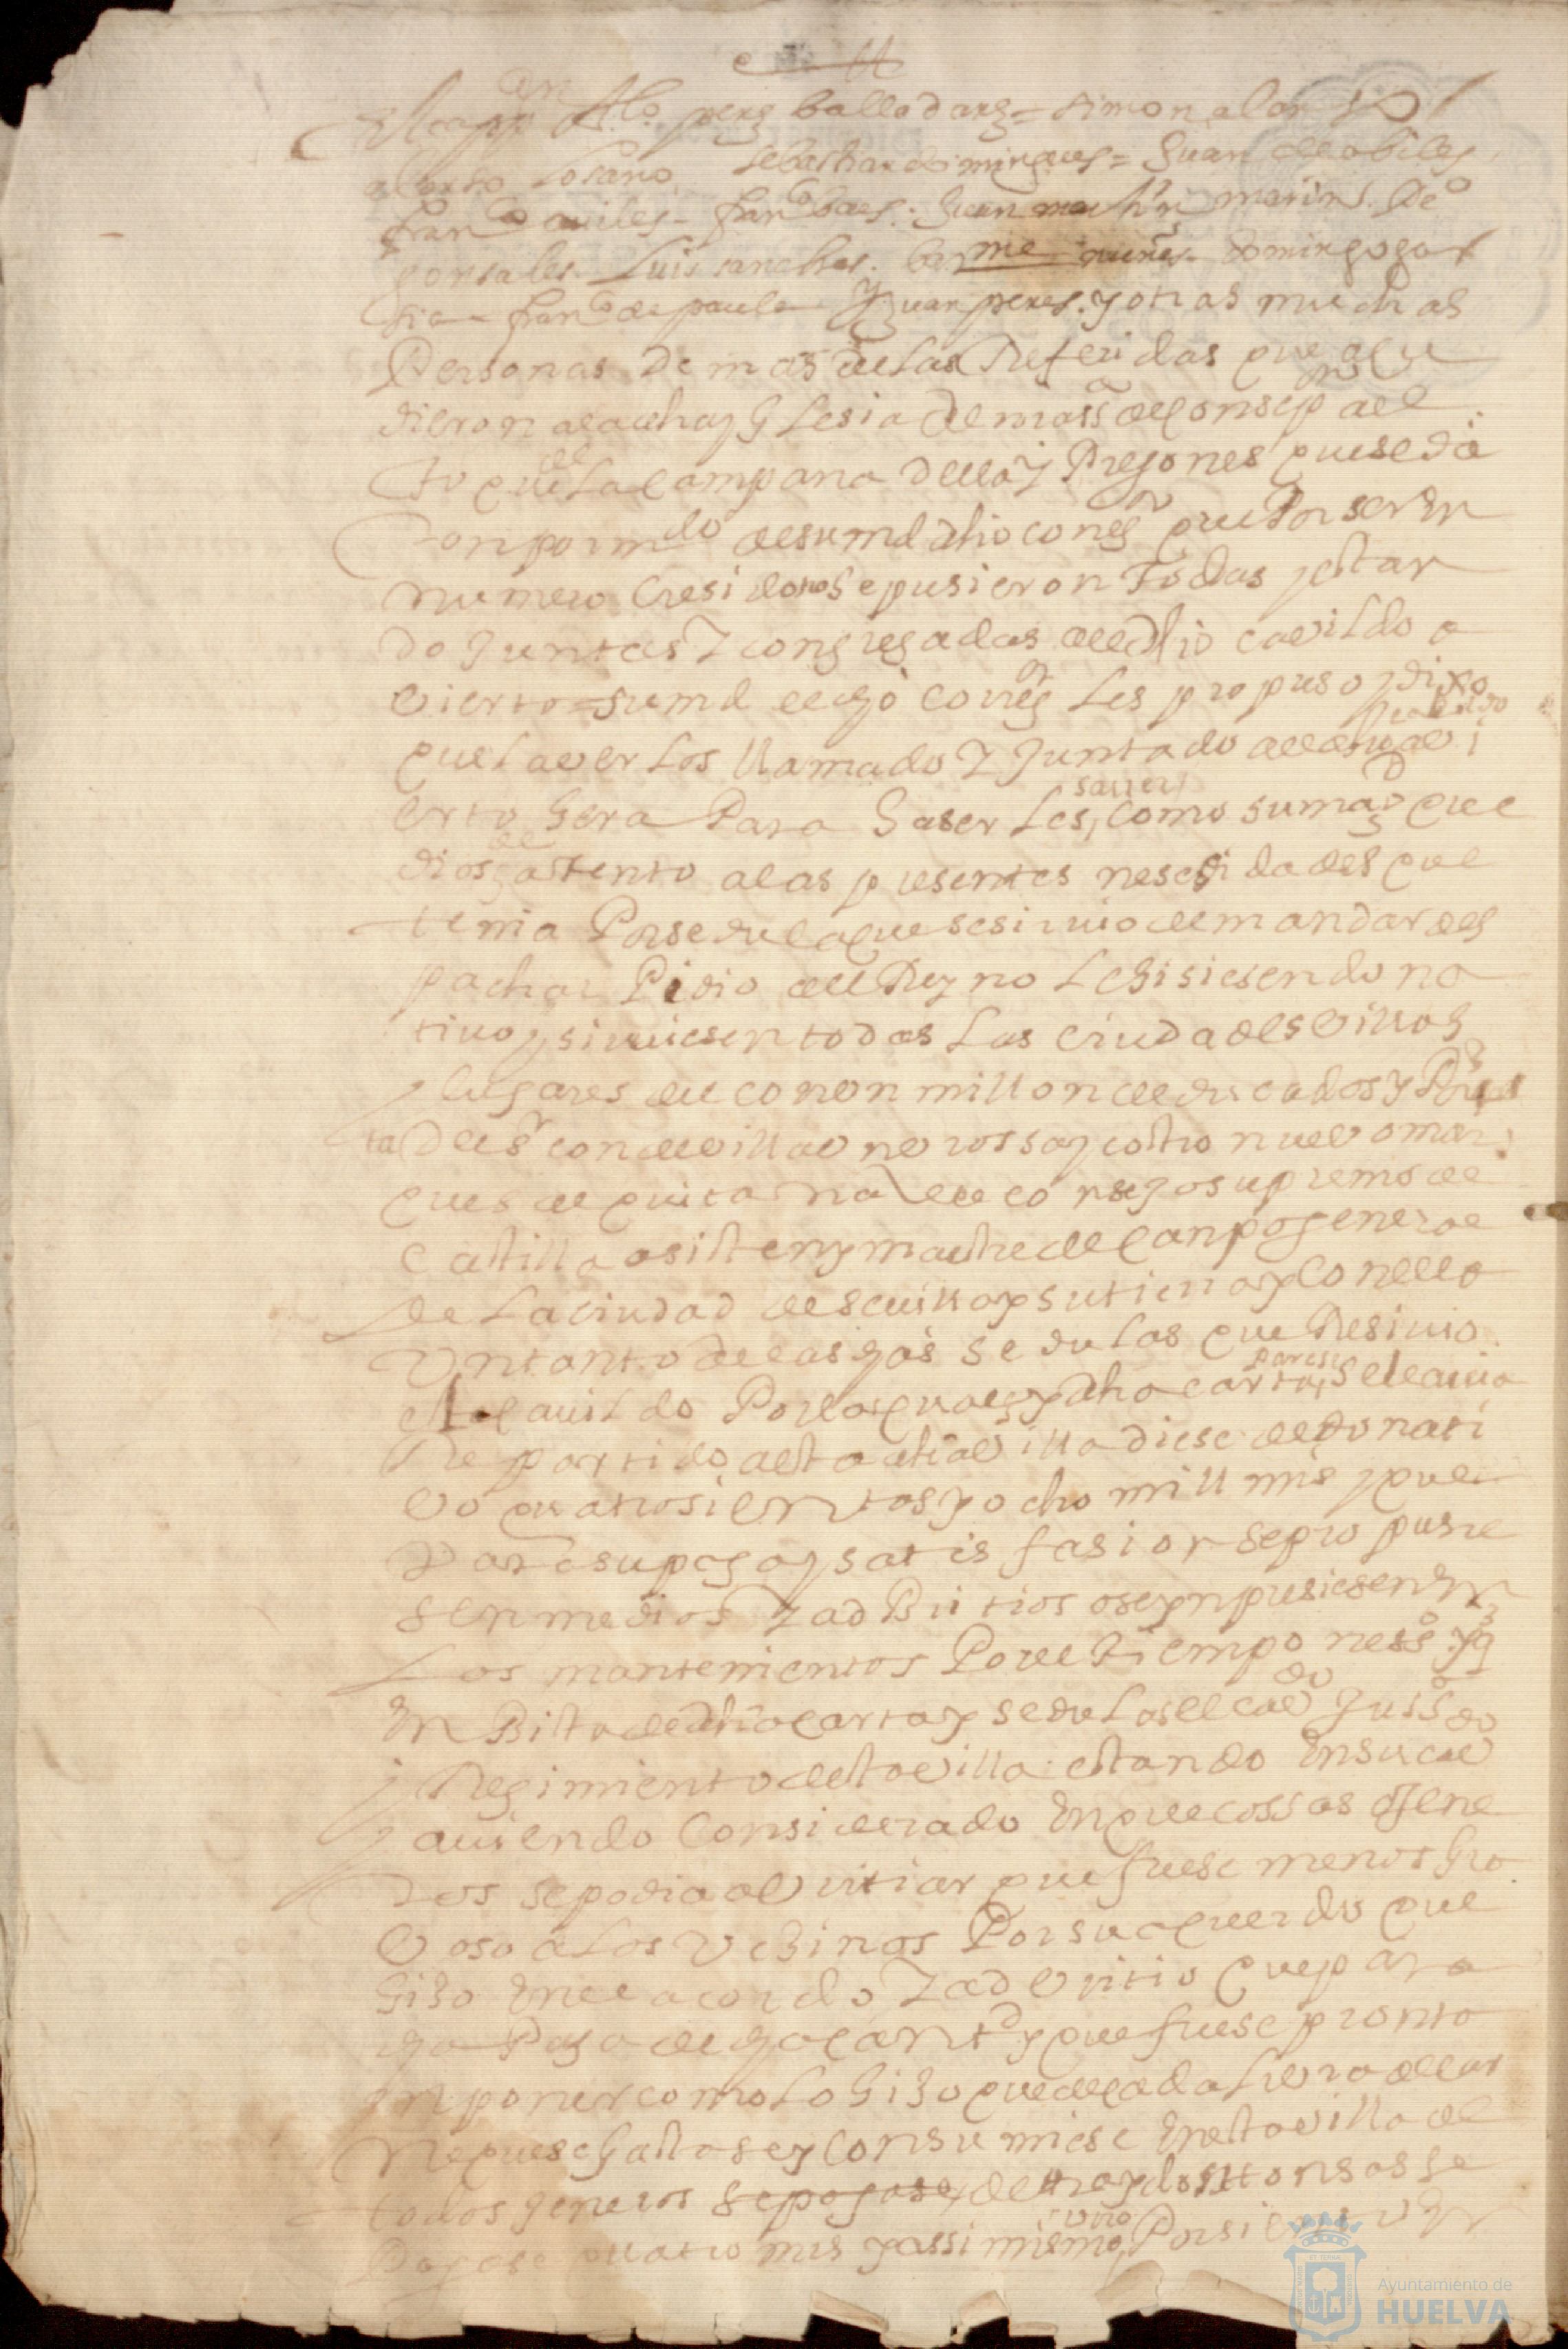 El capp.an Al.o peres balladars = simon alon
alonso Losano sebastian dominguez = Juan de abiles
fran.co aviles - fran.co baes. Juan martin marin P.o
gonsales - Luis sanches. bar.me nuñes - domingo gar
sia - fran.co de paula Juan peres. y otras muchas
Personas demas de las Referidas que acu
dieron a la dicha yglesia de mass del consep.on al
to que de la campana della y Pregones que se dio
Con por mdo de su md dho correg.or que Por ser En
numero Cresido no se pusieron Todas y estan
do Juntas Y congregadas al dho cavildo a
vierto = su md el dho correg.or Les propuso y dixo
que el aver los llamado Y Juntado al cavildo avi
erto hera Para haserles saver Como su mag.d que
dios g.de atento a las presentes nesesidades que
tenia Por sedula que se sirvio de mandar des
pachar Pidio al Reyno Le hisiesen dona
tivo y sirviesen todas Las ciudades villas
y lugares del con un millon de ducados y Por car
ta del s.r conde de villaunbrossa y castronuevo mar
ques de quintana del consejo supremo de
castilla asistente y maestre de Canpo general
de La ciudad de sevilla y su tierra y Con ella
Un tanto de las dhas sedulas que Resivio
este cavildo Por las quales y dha carta paresia se le avia
Repartido a esta dha villa diese de donati
vo quatrosientos y ocho mill mrs y que
Para su paga y satisfasion se propusie
sen medios Y adbitrios o se ynpusiesen En
Los mantenimientos Por el tiempo ness.o y q
En Bista de dha carta y sedulas el cav.do Juss.a
y Regimiento desta villa estando En su cav.do
y aviendo Considerado En que cossas o gene
ros se podia alvitriar que fuese menos gra
voso a Los Vesinos Por su aquerdo que
hiso En el acordo Y adbitrio que para
la Paga de dha cant.d y que fuese pronto
ynponer como Lo hiso que de cada Libra de car
ne que se gastase y Consumiese En esta villa de
todos generos se pagase de mas y dos sttonsas se
Pagase quatro mrs y assi mismo Por si